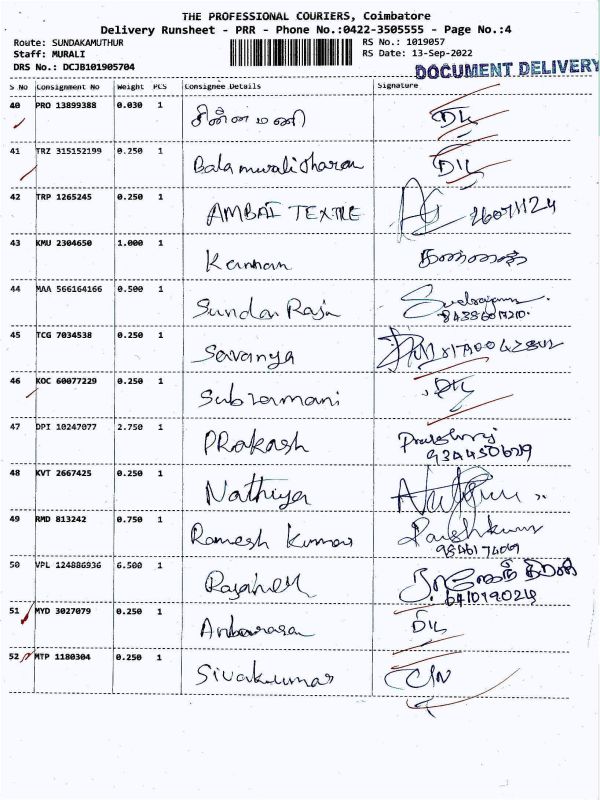 THE PROFESSIONAL COURIERS, Coimbatore
Delivery Runsheet - PRR - Phone No.:0422-3505555 - Page No.:4
Route: SUNDAKAMUTHUR RS No.: 1019057
Staff: MURALI RS Date: 13-Sep-2022
DRS No.: DCJB101905704
DOCUMENT DELIVERY
S No Consignment No Weight PCS Consignee Details Signature
40 PRO 13899388 0.030 1 சின்னமணி DL
41 TRZ 315152199 0.250 1 Balamuralidharan DL
42 TRP 1265245 0.250 1 AMBAI TEXTILE
43 KMU 2304650 1.000 1 Kannan
44 MAA 566164166 0.500 1 Sundar Raja
45 TCG 7034538 0.250 1 Savanya
46 KOC 60077229 0.250 1 Subramani DL
47 DPI 10247077 2.750 1 PRakash
9344450679
48 KVT 2667425 0.250 1 Nathiya
49 RMD 813242 0.750 1 Ramesh Kumar
50 VPL 124886936 6.500 1
51 MYD 3027079 0.250 1 Anbarasan DL
52 MTP 1180304 0.250 1 Sivakumar